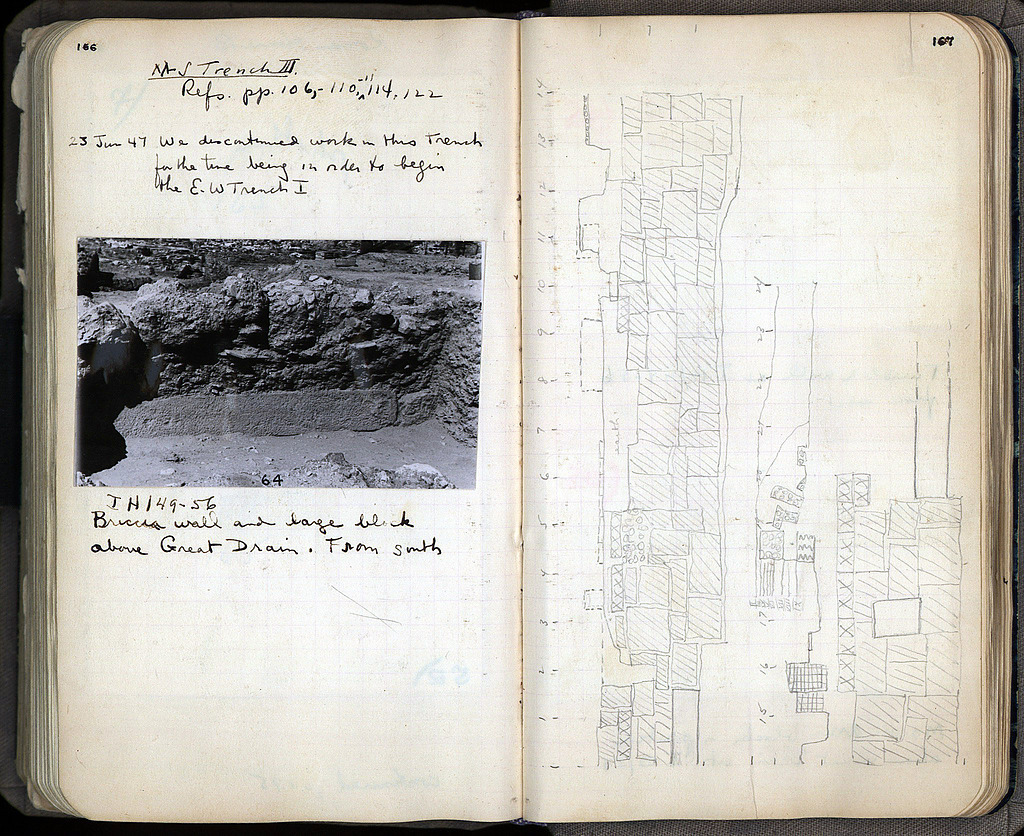 166
N-S Trench III.
Refs. pp. 106,-110,-11, 114, 122
23 Jun 47 We discontinued work in this Trench
for the time being in order to begin
the E-W Trench I
64
I H/49-56
Breccia wall and large block
above Great Drain. From south
167
14
13
12
11
10
9
8
7
earth
6
5
4
3
2
1
24
23
22
21
20
17
16
15